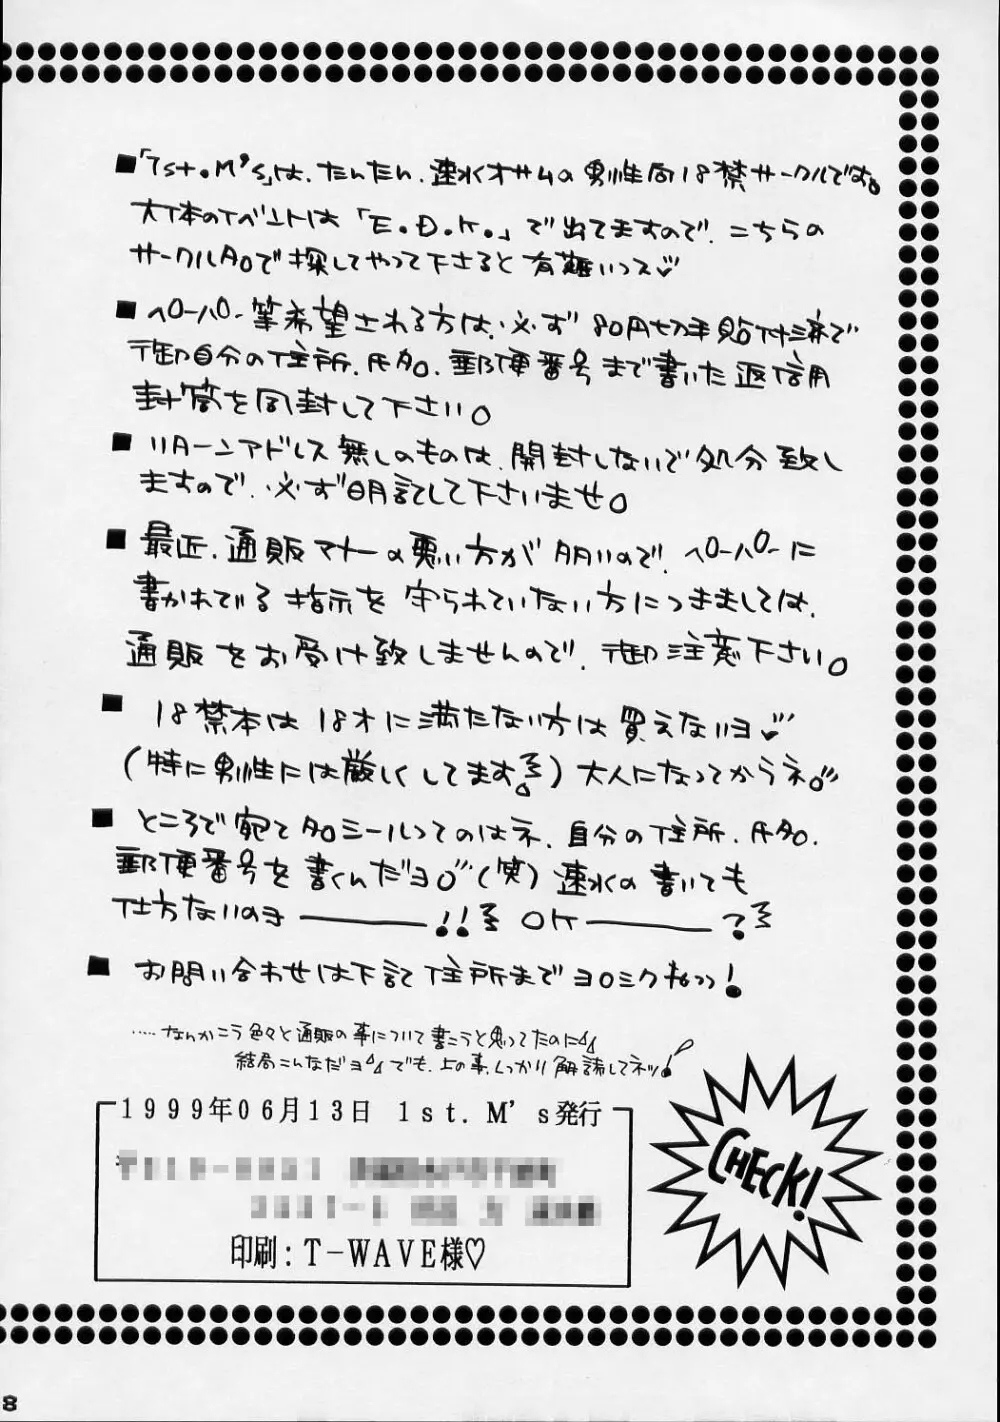 ■「1st.M's」は、たんたん、速水オサムの男性向18禁サークルです。
大体のイベントは「E.D.K.」で出てますので、こちらの
サークル名で探してやって下さると有難いっス♡
■ペーパー等希望される方は、必ず80円切手貼付済で
御自分の住所、氏名、郵便番号まで書いた返信用
封筒を同封して下さい。
■リターンアドレス無しのものは、開封しないで処分致し
ますので、必ず明記して下さいませ。
■最近、通販マナーの悪い方が多いので、ペーパーに
書かれてる指示を守られていない方につきましては、
通販をお受け致しませんので、御注意下さい。
■18禁本は18才に満たない方は買えないヨ♡
(特に男性には厳しくしてます!)大人になってからネ。
■ところで宛て名シールってのはネ、自分の住所、氏名、
郵便番号を書くんだヨ。(笑)速水の書いても
仕方ないのヨ――!! OK――?
■お問い合わせは下記住所までヨロシクねっっ!
……なんかこう色々と通販の事について書こうと思ってたのに
結局こんなだヨ でも、上の事、しっかり解読してネッ!
1999年06月13日 1st. M's発行
印刷:T-WAVE様♡
CHECK!
8